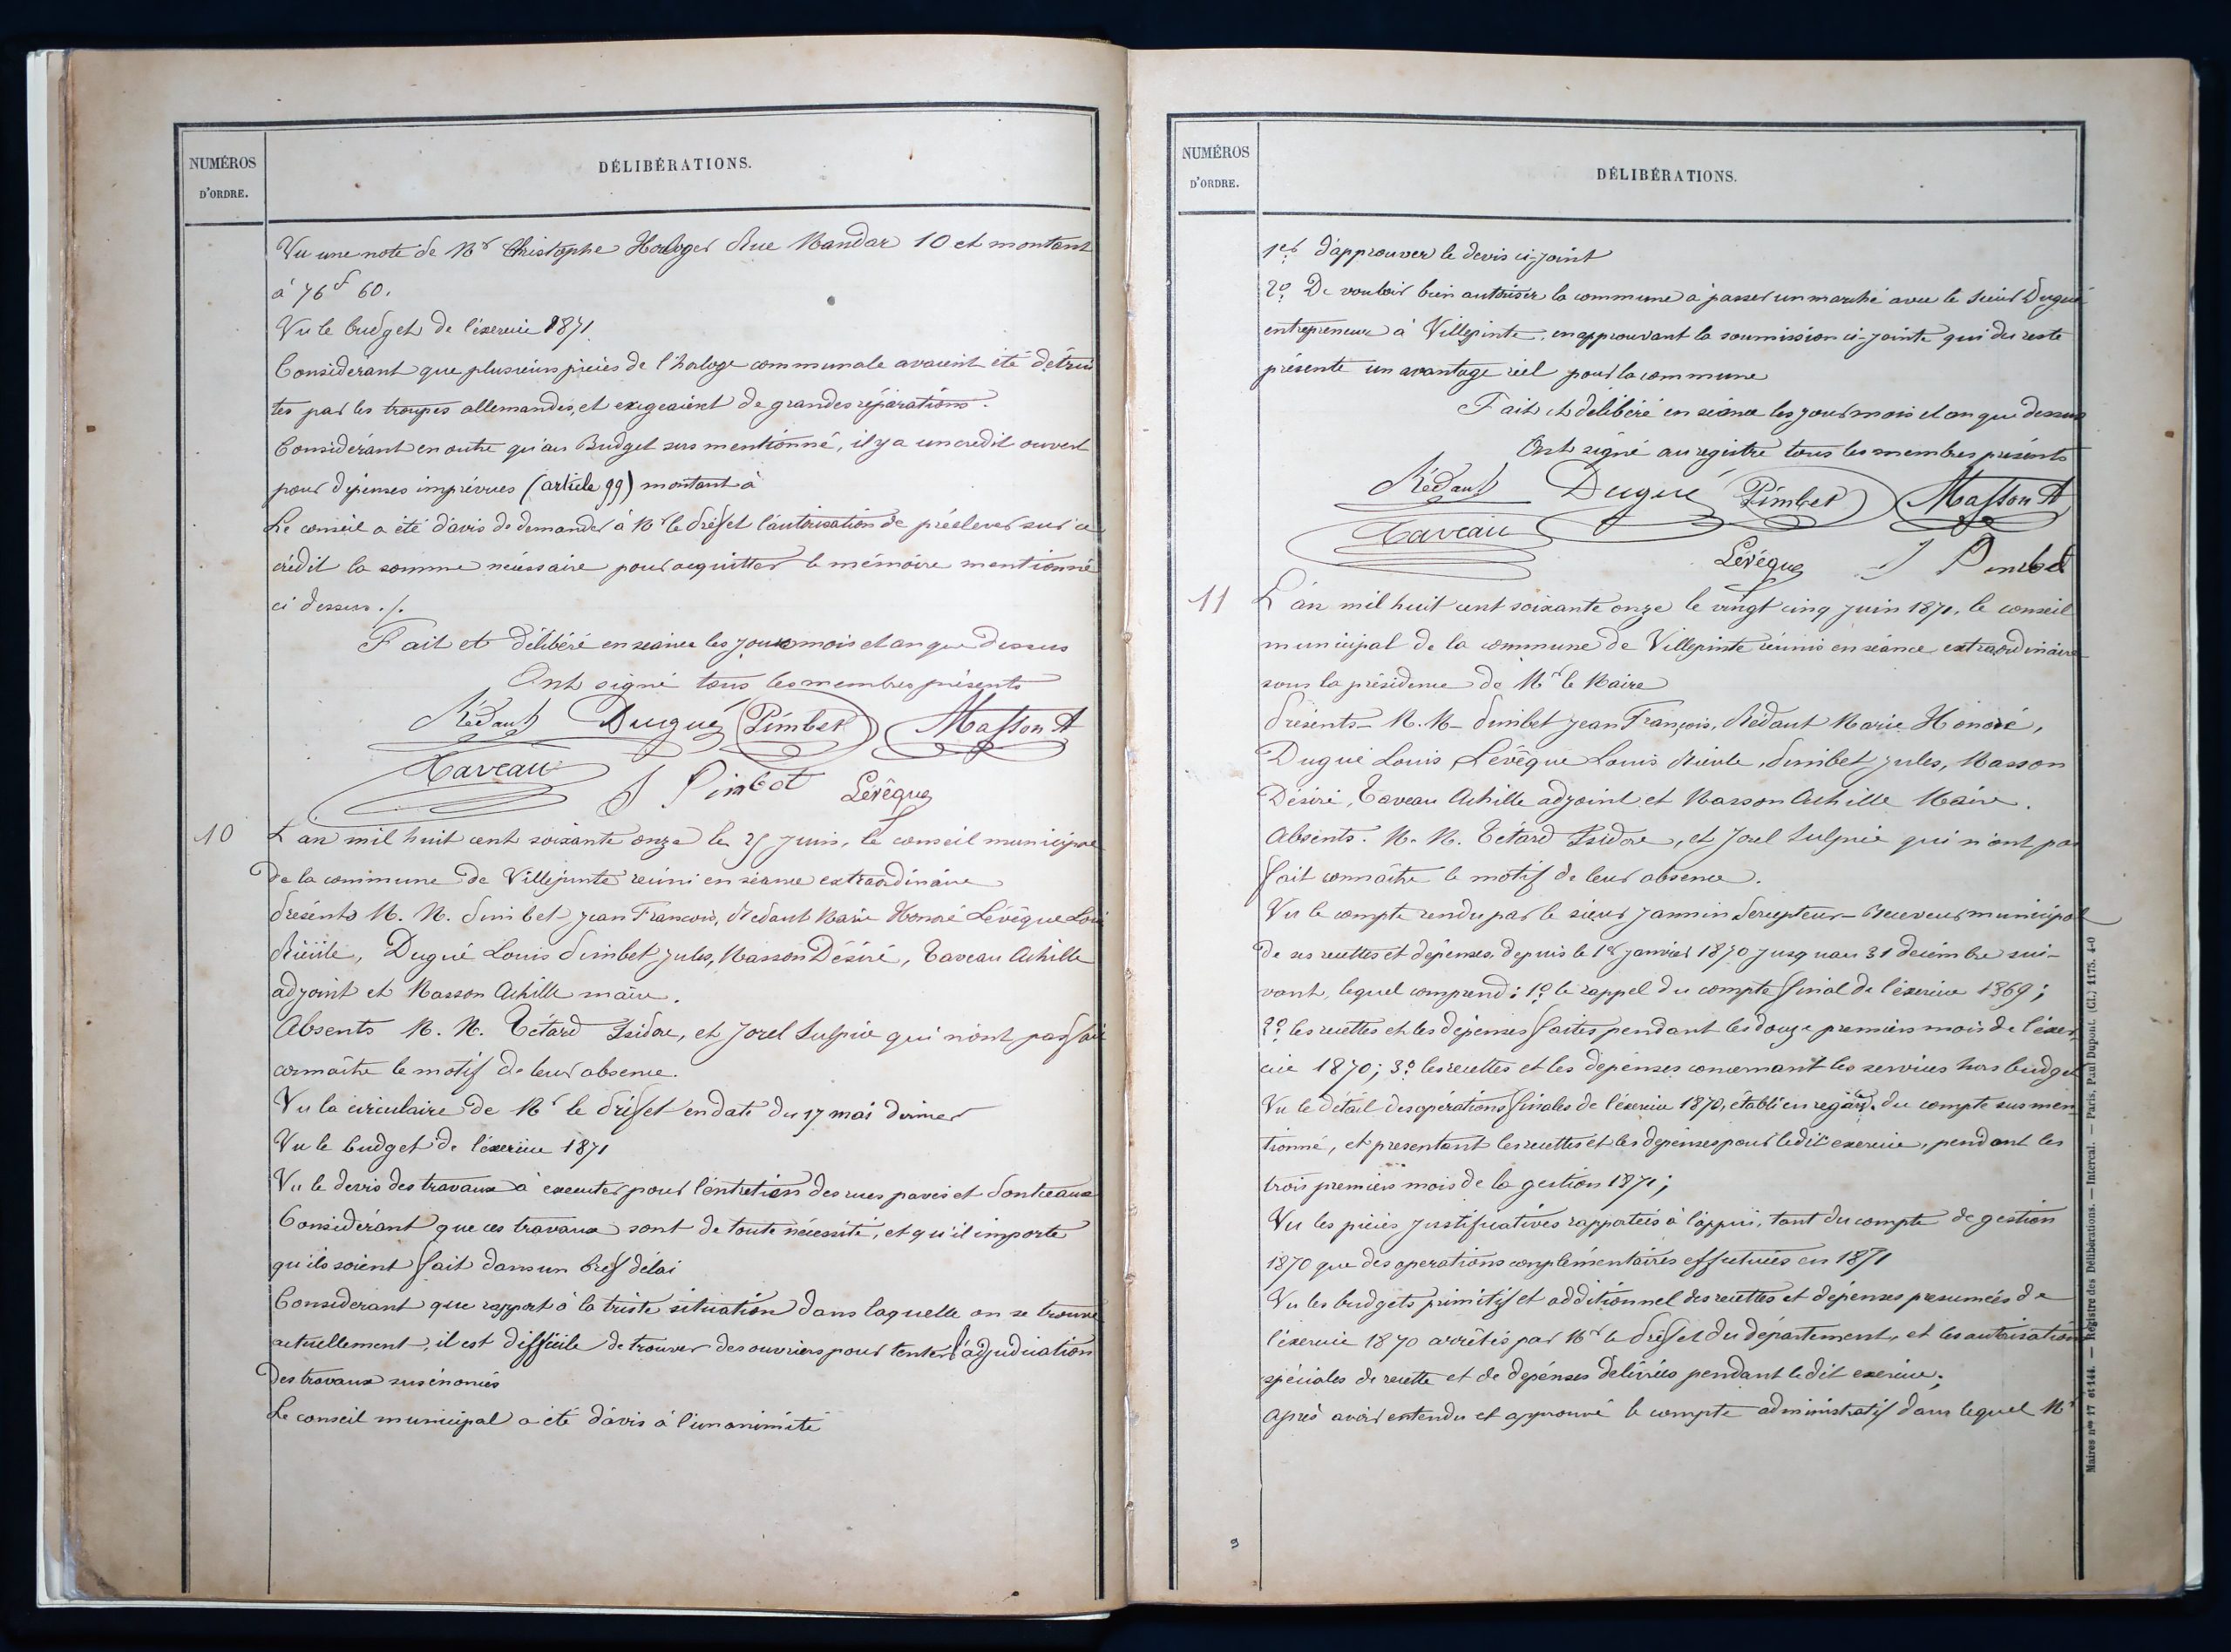 NUMÉROS
D'ORDRE.
DÉLIBÉRATIONS.
Vu une note de Mr Christophe Horloger Rue Mandar 10 et montant
à 76f 60.
Vu le budget de l'éxercice 1871.
Considérant que plusieurs pièces de l'horloge communale avaient été détrui
tes par les troupes allemandes, et exigeaient de grandes réparations.
Considérant en outre qu'au Budget sus mentionné, il y a un crédit ouvert
pour dépenses imprévues (article 99) montant à
Le conseil a été d'avis de demander à Mr le Préfet l'autorisation de préelever sur ce
crédit la somme nécessaire pour acquitter le mémoire mentionné
ci dessus ./.
Fait et délibéré en séance les jour mois et an que dessus
Ont signé tous les membres présents
Rédaut Dugué Pimbet Masson A
Taveau J Pimbet Lévêque
10
L'an mil huit cent soixante onze le 25 Juin, le conseil municipal
de la commune de Villepinte réuni en séance extraordinaire
Présents M. M. Pimbet Jean Francois, Redaut Marie Honoré Lévêque Loui
Nicole, Dugué Louis Pimbet Jules, Masson Désiré, Taveau Achille
adjoint et Masson Achille maire.
Absents M. M. Tétard Isidore, et Jorel Sulpice qui n'ont pas fait
connaître le motif de leur absence.
Vu la circulaire de Mr le Préfet en date du 17 mai dernier
Vu le budget de l'éxercice 1871
Vu le devis des travaux à executer pour l'entretien des rues pavés et Ponceaux
Considérant que ces travaux sont de toute nécessité, et qu'il importe
qu'ils soient fait dans un bref délai
Considerant que rapport à la triste situation dans laquelle on se trouve
actuellement, il est difficile de trouver des ouvriers pour tenter l'adjudication
des travaux susénoncés
Le conseil municipal a été d'avis à l'unanimité
NUMÉROS
D'ORDRE.
DÉLIBÉRATIONS.
1er d'approuver le devis ci-joint
2o De vouloir bien autoriser la commune à passer un marché avec le sieur Dugué
entrepreneur à Villepinte, en approuvant la soumission ci-jointe qui du reste
présente un avantage réel pour la commune
Fait et délibéré en séance les jour mois et an que dessus
Ont signé au registre tous les membres présents
Rédaut Dugué Pimbet Masson A
Taveau Lévêque J Pimbet
11
L'an mil huit cent soixante onze le vingt cinq juin 1871, le conseil
municipal de la commune de Villepinte réunis en séance extraordinaire
sous la présidence de Mr le Maire
Présents M. M. Pimbet Jean François, Rédaut Marie Honoré,
Dugué Louis, Lévêque Louis Nicole, Pimbet Jules, Masson
Désiré, Taveau Achille adjoint et Masson Achille Maire.
Absents. M. M. Tétard Isidore, et Jorel Sulpice qui n'ont pas
fait connaître le motif de leur absence.
Vu le compte rendu par le sieur Jannin Percepteur-Receveur municipal
de ses recettes et dépenses, depuis le 1er janvier 1870 jusqu'au 31 décembre sui-
vant, lequel comprend : 1o le rappel du compte final de l'éxercice 1869 ;
2o les recettes et les dépenses faites pendant les douze premiers mois de l'éxer
cice 1870 ; 3o les recettes et les dépenses concernant les services hors budget
Vu le détail des opérations finales de l'éxercice 1870, établi en regard du compte susmen
tionné, et presentant les recettes et les depenses pour ledit exercice, pendant les
trois premiers mois de la gestion 1871 ;
Vu les pièces justificatives rapportées à l'appui, tant du compte de gestion
1870 que des operations complémentaires effectuées en 1871
Vu les budgets primitif et additionnel des recettes et dépenses presumées de
l'éxercice 1870 arrêtés par Mr le Préfet du département, et les autorisations
spéciales de recette et de dépenses délivrées pendant le dit exercice ;
Après avoir entendu et approuvé le compte administratif dans lequel Mr
Maires nos 17 et 144. — Registre des Délibérations. — Intercal. — Paris, Paul Dupont. (Cl.) 1175. 4-0